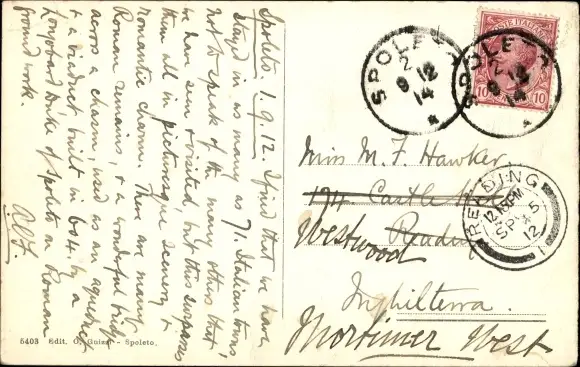 Spoleto 1.9.12. I find that we have
stayed in as many as 7 Italian towns,
not to speak of the many others that
we have seen & visited, but this surpasses
them all in picturesque scenery &
romantic charm. There are many
Roman remains, & a wonderful bridge
across a chasm, used as an aqueduct
& a viaduct built in 604 by a
Longobard Duke of Spoleto on Roman
ground work.
5403 Edit. G. - Spoleto.
POSTE ITALIANE
10 10
SPOLETO
2 9 12
14
SPOLETO
2 9 12
14
Miss M. F. Hawker
194 Castle
Westwood Reading
Inghilterra.
Mortimer West
READING
12 PM
SP 5
12
1